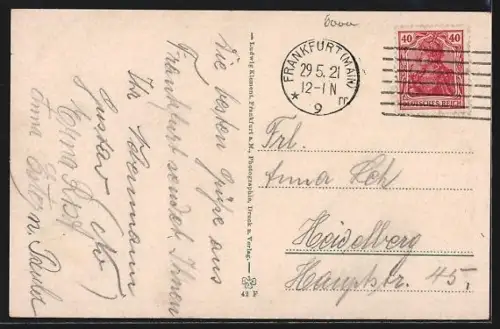 FRANKFURT (MAIN)
29.5.21
12-1 N
* 9 rr
40 40
DEUTSCHES REICH
Die besten Grüße aus
Frankfurt sendet Ihnen
Ihr
Gustav
Erna
Anna n. Paula
Ludwig Klement, Frankfurt a. M., Photographie, Druck u. Verlag.
42 F
Frl.
Anna
Heidelberg
Hauptstr. 45.